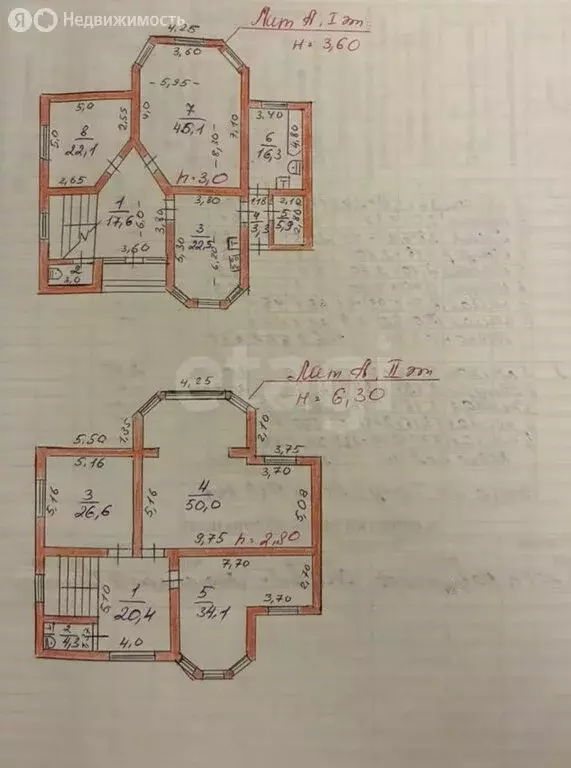 Я Недвижимость
Лит А, I эт
H = 3,60
4,25
3,60
5,95
5,0
2,55
4,0
7
45,1
7,10
3,40
8
22,1
5,0
8,30
6
16,3
4,80
2,65
h = 3,0
1
17,6
6,0
3,80
3,80
1,18
2,10
3
22,5
5,30
6,20
4
3,3
5
5,9
2,80
3,60
2
3,0
etagi
Лит А, II эт
H = 6,30
4,25
1,35
2,10
5,50
5,16
3,75
3,70
5,16
3
26,6
5,16
4
50,0
5,08
9,75
h = 2,80
7,70
2,70
5,10
1
20,4
5
34,1
3,70
2
4,3
4,0